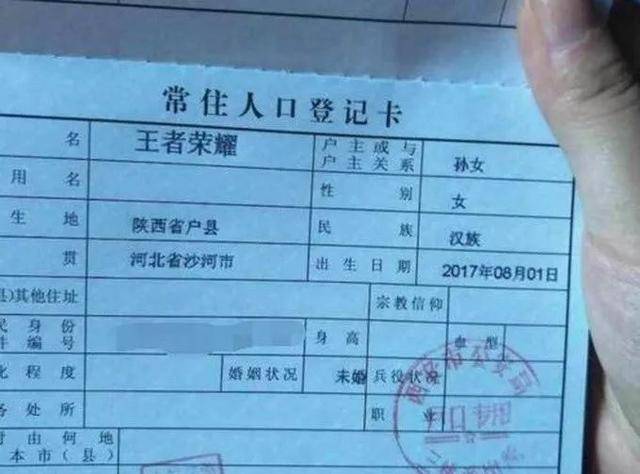 常住人口登记卡
名 王者荣耀 户主或与户主关系 孙女
用名 性别 女
生地 陕西省户县 民族 汉族
贯 河北省沙河市 出生日期 2017年08月01日
县)其他住址 宗教信仰
民身份
件编号 身高 血型
化程度 婚姻状况 未婚 兵役状况
务处所 职业
由何地
本市(县)